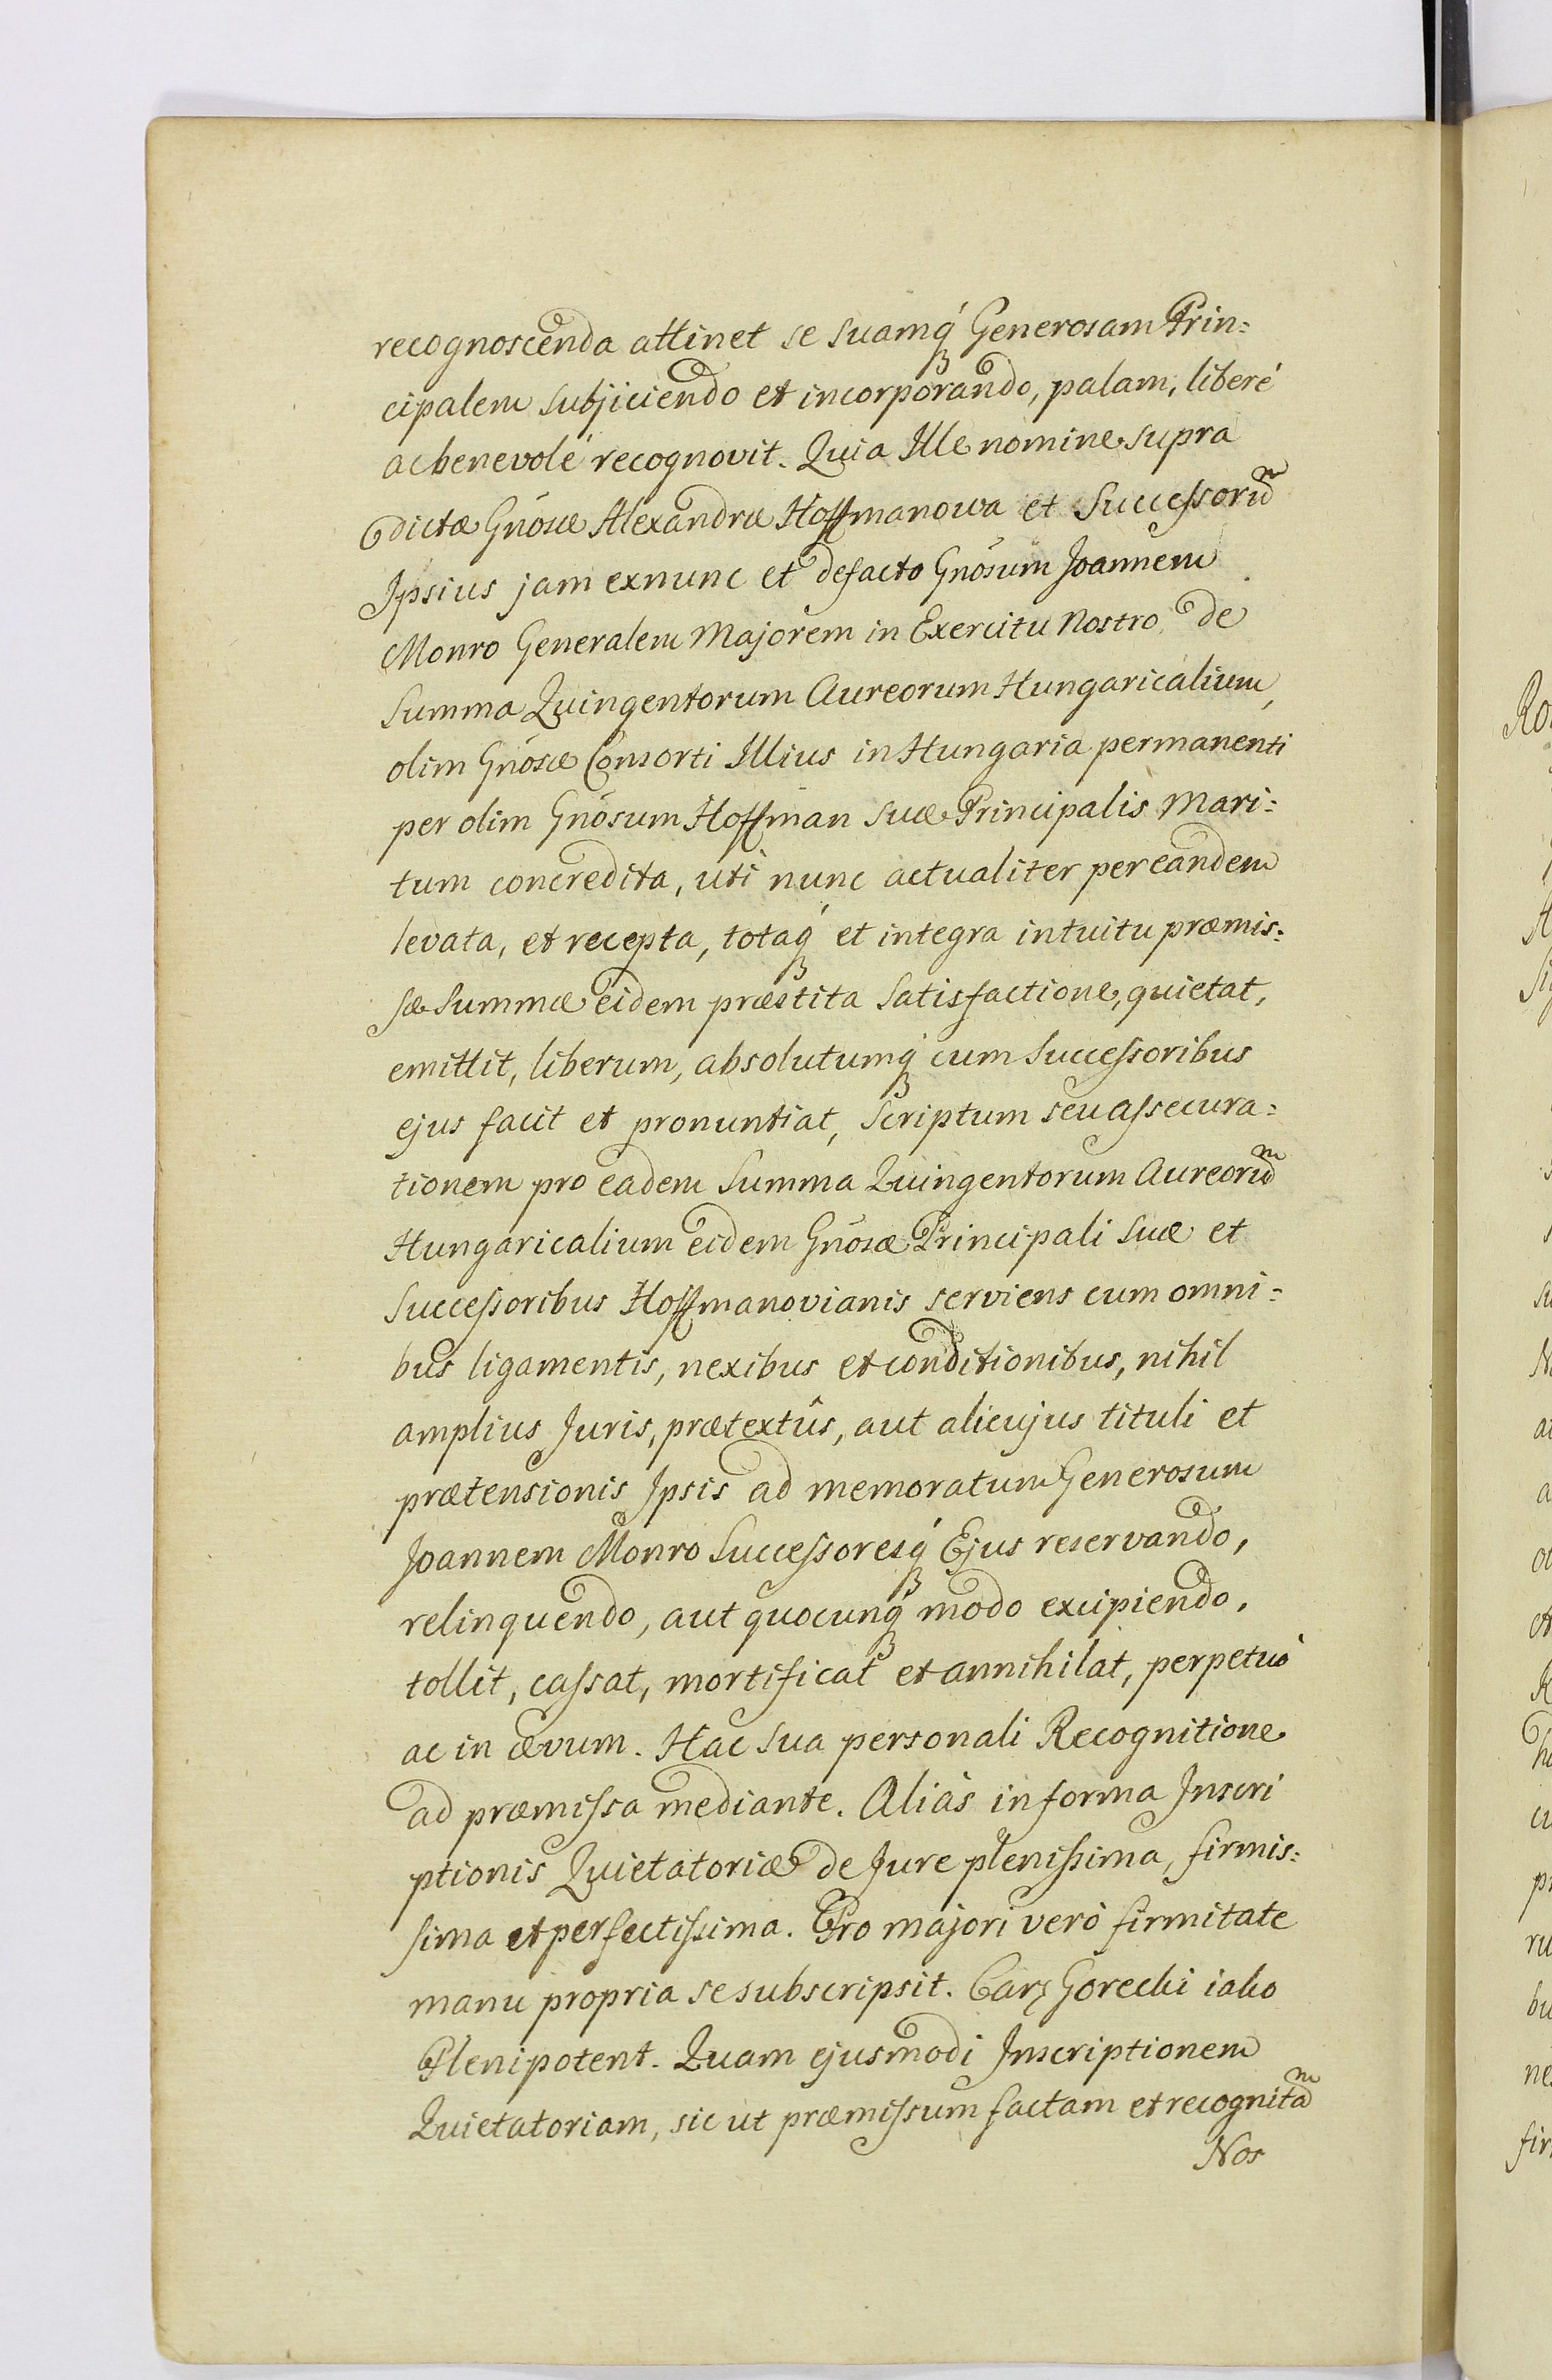 recognoscenda attinet se suamq́ Generosam Prin:
cipalem subjiciendo et incorporando, palam, liberé
ac benevolé recognovit. Quia Ille nomine supra
dictæ Gnosæ Alexandræ Hoffmanowa et Successorum
Ipsius jam exnunc et defacto Gnosum Joannem
Monro Generalem Majorem in Exercitu Nostro de
Summa Quingentorum Aureorum Hungaricalium,
olim Gnosæ Consorti Illius in Hungaria permanenti
per olim Gnosum Hoffman suæ Principalis Mari:
tum concredita, uti nunc actualiter per eandem
levata, et recepta, totaq́ et integra intuitu præmis:
sæ Summæ eidem præstita Satisfactione, quietat,
emittit, liberum, absolutumq́ cum Successoribus
ejus facit et pronuntiat, Scriptum seu assecura:
tionem pro eadem Summa Quingentorum Aureorum
Hungaricalium eidem Gnosæ Principali suæ et
Successoribus Hoffmanovianis serviens cum omni:
bus ligamentis, nexibus et conditionibus, nihil
amplius Juris, prætextûs, aut alicujus tituli et
prætensionis Ipsis ad memoratum Generosum
Joannem Monro Successoresq́ Ejus reservando,
relinquendo, aut quocunq́ modo excipiendo,
tollit, cassat, mortificat et annihilat, perpetuò
ac in ævum. Hac sua personali Recognitione
ad præmissa mediante. Aliàs in forma Inscri
ptionis Quietatoriæ de Jure plenissima, firmis:
sima et perfectissima. Pro majori verò firmitate
manu propria se subscripsit. Gorecki iako
Plenipotent. Quam ejusmodi Inscriptionem
Quietatoriam, sic ut præmissum factam et recognitam
Nos